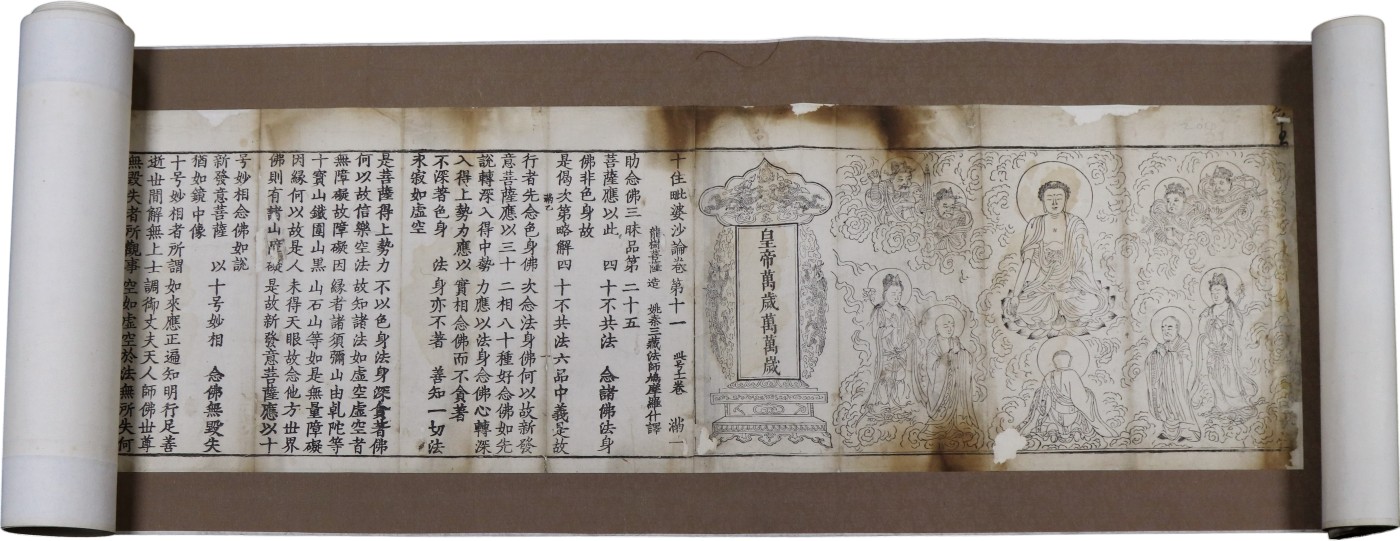 皇帝萬歲萬萬歲
十住毗婆沙論卷第十一 滿一
龍樹菩薩造 姚秦三藏法師鳩摩羅什譯
助念佛三昧品第二十五
菩薩應以此 四十不共法 念諸佛法身
佛非色身故
是偈次第略解四十不共法六品中義是故
行者先念色身佛次念法身佛何以故新發
意菩薩應以三十二相八十種好念佛如先
說轉深入得中勢力應以法身念佛心轉深
入得上勢力應以實相念佛而不貪著
不深著色身 法身亦不著 善知一切法
永寂如虛空
是菩薩得上勢力不以色身法身深貪著佛
何以故信樂空法故知諸法如虛空虛空者
無障礙故障礙因緣者諸須彌山由乹陀等
十寶山鐵圍山黑山石山等如是無量障礙
因緣何以故是人未得天眼故念他方世界
佛則有諸山障礙是故新發意菩薩應以十
号妙相念佛如說
新發意菩薩 以十号妙相 念佛無毀失
猶如鏡中像
十号妙相者所謂如來應正遍知明行足善
逝世間解無上士調御丈夫天人師佛世尊
無毀失者所觀事空如虛空於法無所失何